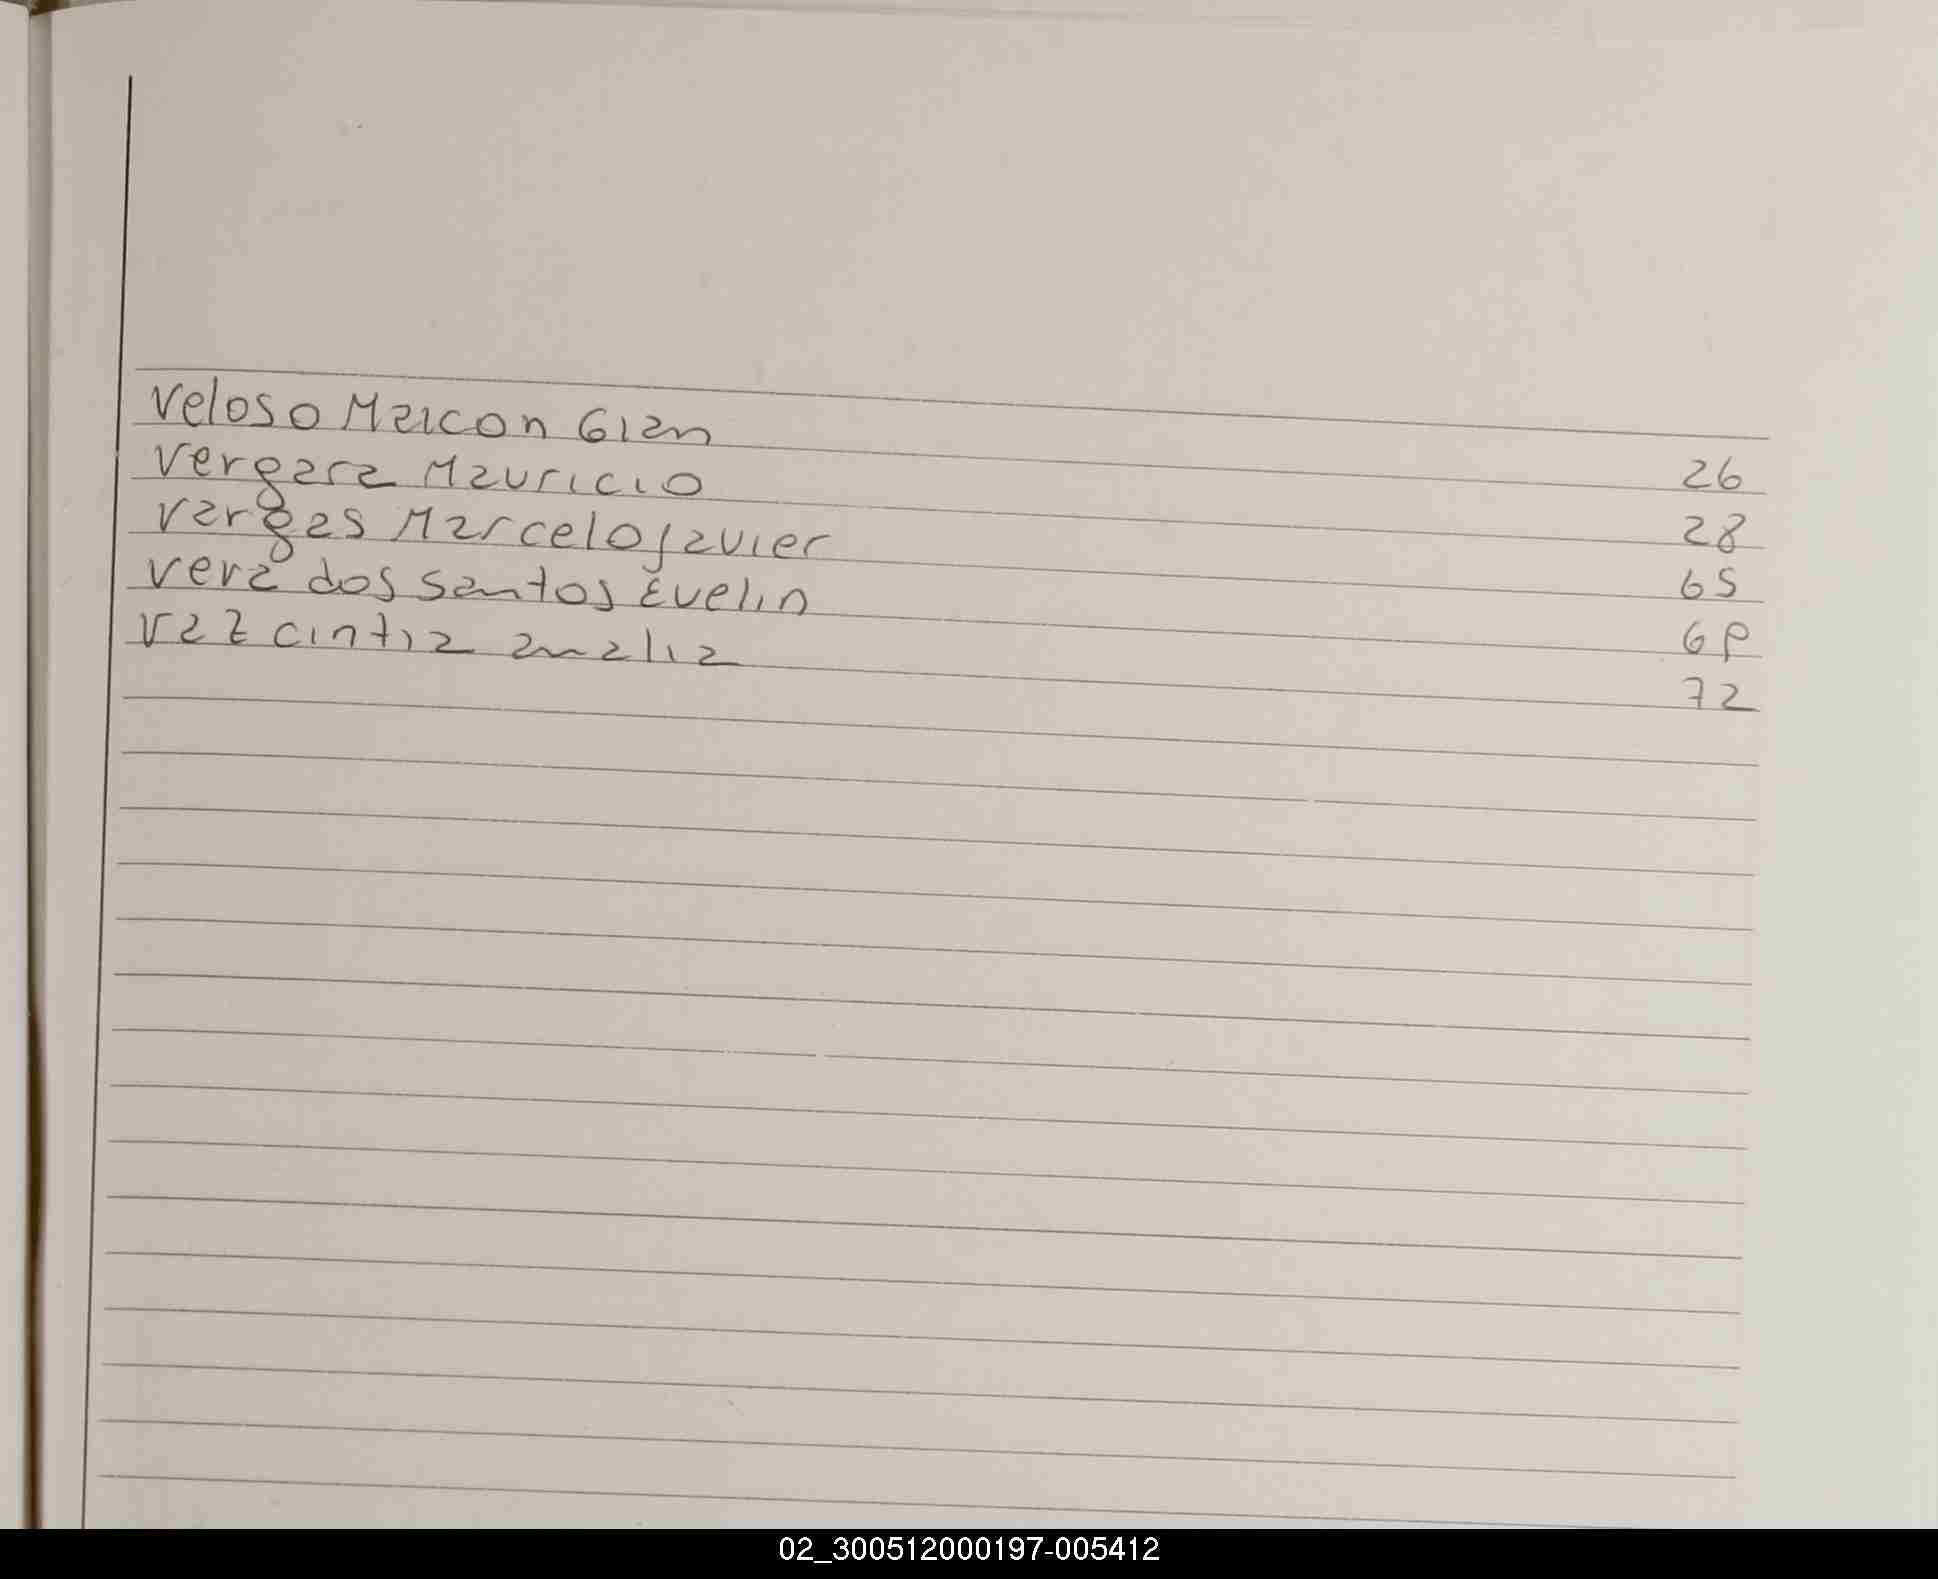 Veloso Maicon Gian 26
Vergara Mauricio 28
Vargas Marcelo Javier 65
Vera dos Santos Evelin 69
Vaz cintia analia 72
02_300512000197-005412